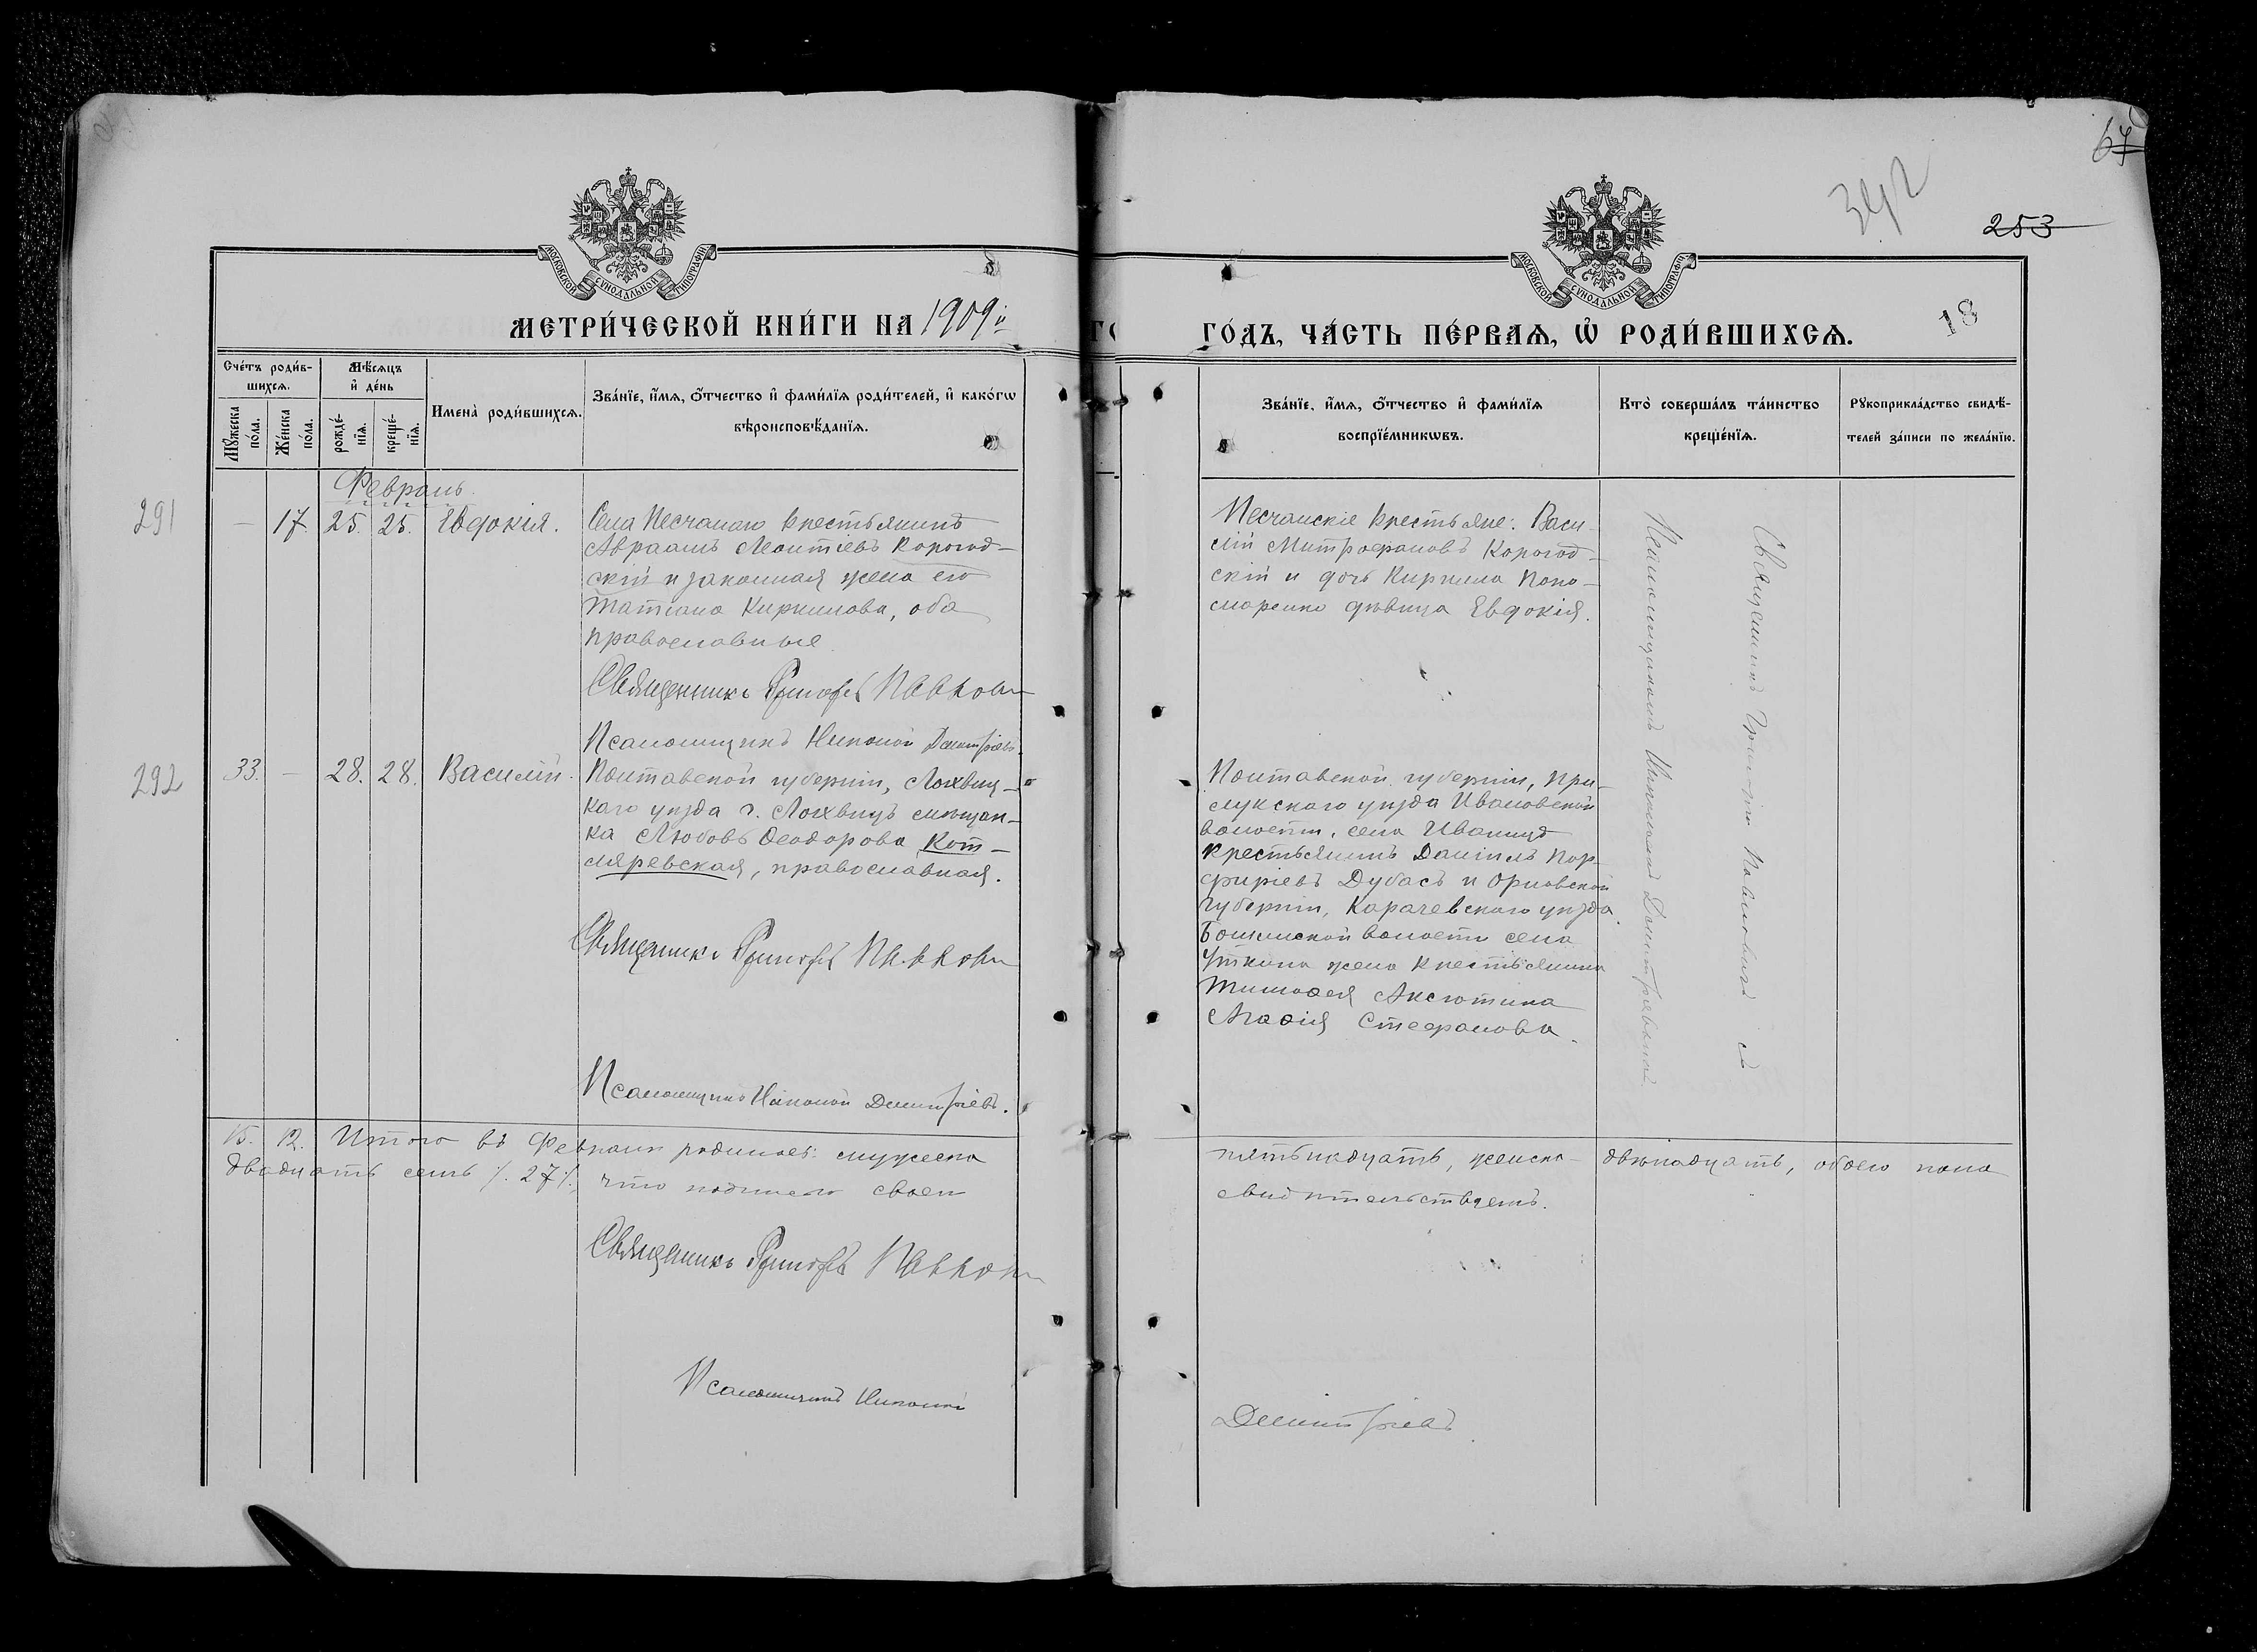 67
Зер2
253
18
МОСКОВСКОЙ СѴНОДАЛЬНОЙ ТИПОГРАФІИ
МОСКОВСКОЙ СѴНОДАЛЬНОЙ ТИПОГРАФІИ
МЕТРИ́ЧЕСКОЙ КНИ́ГИ НА 1909й
ГО́ДЪ, ЧА́СТЬ ПЕ́РВАѦ, Ѡ҆ РОДИ́ВШИХСѦ.
Сче́тъ роди́в-
шихсѧ.
Мꙋ́жеска по́ла.
Же́нска по́ла.
Мѣ́сѧцъ
и҆ де́нь
рожде́-
нїѧ.
креще́-
нїѧ.
Имена̀ роди́вшихсѧ.
Зва́нїе, и҆́мѧ, ѻ҆́тчество и҆ фами́лїѧ роди́телей, и҆ како́гѡ
вѣроисповѣ́данїѧ.
Зва́нїе, и҆́мѧ, ѻ҆́тчество и҆ фами́лїѧ
воспрїе́мникѡвъ.
Кто̀ соверша́лъ та́инство
креще́нїѧ.
Рꙋкоприкла́дство свидѣ́-
телей за́писи по жела́нїю.
Февраль
291
— 17. 25. 25. Евдокія.
Села Песчанаго крестьянинъ
Авраамъ Леонтіевъ Корогод-
скій и законная жена его
Татіана Кириллова, оба
православные
Священникъ Григорій
Псаломщикъ Николай Димитріевъ.
Песчанскіе крестьяне: Васи-
лій Митрофановъ Корогод-
скій и дочь Кирилла Поно-
маренко дѣвица Евдокія.
Священникъ Григорій съ
Псаломщикомъ Николаемъ
292
33. — 28. 28. Василій.
Полтавской губерніи, Лохвиц-
каго уѣзда г. Лохвицъ мѣщан-
ка Любовь Ѳеодорова Кот-
ляревская, православная.
Священникъ Григорій
Псаломщикъ Николай Димитріевъ.
Полтавской губерніи, При-
лукскаго уѣзда Ивановской
волости, села Иваницъ
крестьянинъ Даніилъ Пор-
фиріевъ Дубасъ и Орловской
губерніи, Карачевскаго уѣзда
волости села
Уткина жена крестьянина
Тимоѳея Аксютина
Агаѳія Стефанова.
15. 12. Итого въ Февралѣ родилось: мужеска
пятьнадцать, женска двѣнадцать, обоего пола
двадцать семь /. 27 /., что подписью своею
свидѣтельствуемъ.
Священникъ Григорій
Псаломщикъ Николай
Димитріевъ